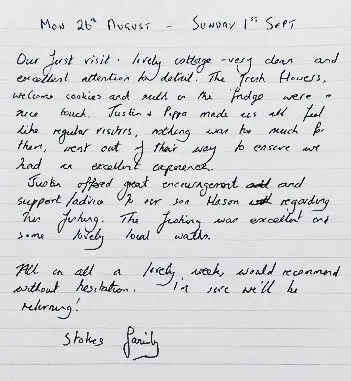 Mon 26th August - Sunday 1st Sept
Our first visit. lovely cottage - very clean and
excellent attention to detail. The fresh flowers,
welcome cookies and milk in the fridge were a
nice touch. Justin & Pippa made us all feel
like regular visitors, nothing was too much for
them, went out of their way to ensure we
had an excellent experience.
Justin offered great encouragement and
support/advice to our son Mason regarding
his fishing. The fishing was excellent and
some lovely local walks.
All in all a lovely week, would recommend
without hesitation. I'm sure we'll be
returning!
Stokes family